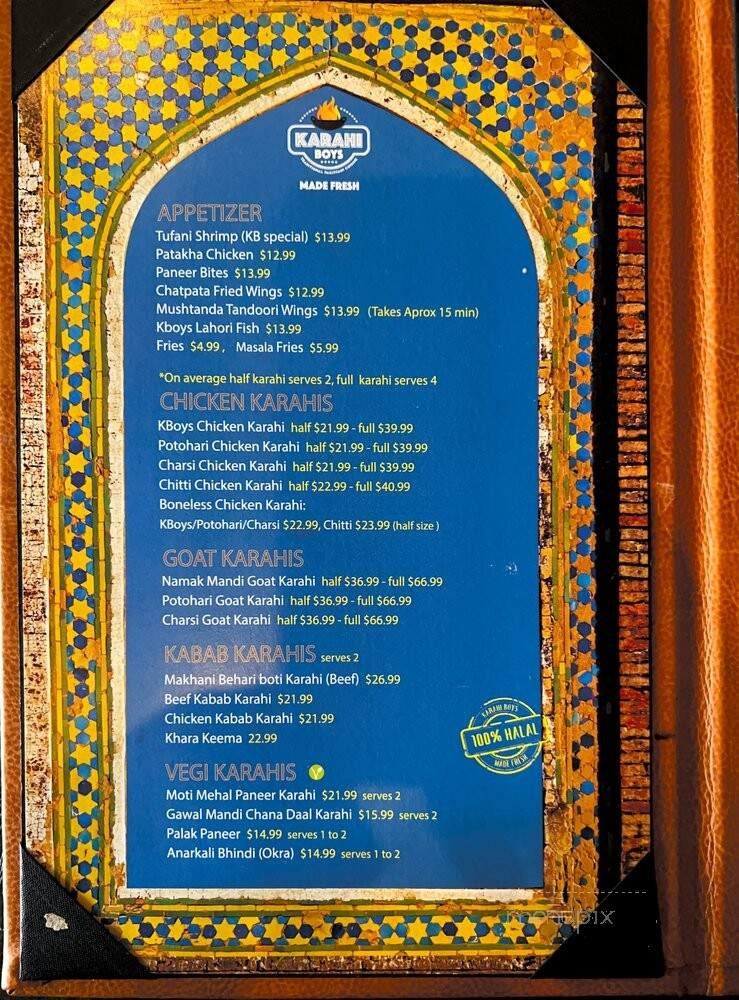 KARAHI
BOYS
MADE FRESH
APPETIZER
Tufani Shrimp (KB special) $13.99
Patakha Chicken $12.99
Paneer Bites $13.99
Chatpata Fried Wings $12.99
Mushtanda Tandoori Wings $13.99 (Takes Aprox 15 min)
Kboys Lahori Fish $13.99
Fries $4.99 , Masala Fries $5.99
*On average half karahi serves 2, full karahi serves 4
CHICKEN KARAHIS
KBoys Chicken Karahi half $21.99 - full $39.99
Potohari Chicken Karahi half $21.99 - full $39.99
Charsi Chicken Karahi half $21.99 - full $39.99
Chitti Chicken Karahi half $22.99 - full $40.99
Boneless Chicken Karahi:
KBoys/Potohari/Charsi $22.99, Chitti $23.99 (half size )
GOAT KARAHIS
Namak Mandi Goat Karahi half $36.99 - full $66.99
Potohari Goat Karahi half $36.99 - full $66.99
Charsi Goat Karahi half $36.99 - full $66.99
KABAB KARAHIS serves 2
Makhani Behari boti Karahi (Beef) $26.99
Beef Kabab Karahi $21.99
Chicken Kabab Karahi $21.99
Khara Keema 22.99
KARAHI BOYS
100% HALAL
MADE FRESH
VEGI KARAHIS V
Moti Mehal Paneer Karahi $21.99 serves 2
Gawal Mandi Chana Daal Karahi $15.99 serves 2
Palak Paneer $14.99 serves 1 to 2
Anarkali Bhindi (Okra) $14.99 serves 1 to 2
menupix